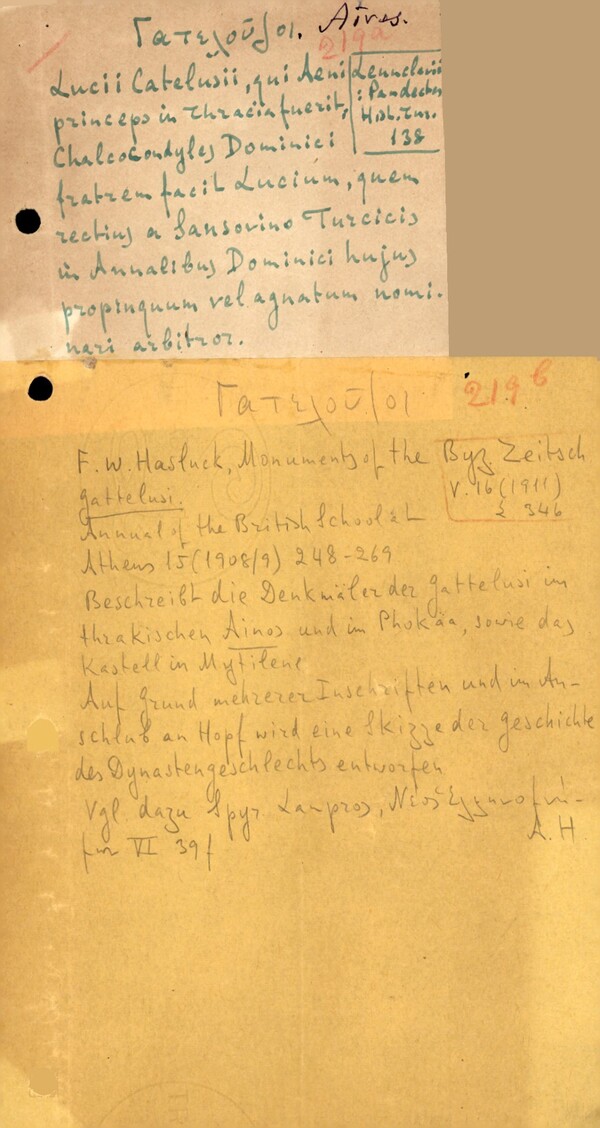 Γατελοῦζοι. Αἶνος.
219a
Lucii Catelusii, qui Aeni
princeps in Thracia fuerit,
Chalcocondyles Dominici
fratrem facit Lucium, quem
rectius a Sansovino Turcicis
in Annalibus Dominici hujus
propinquum vel agnatum nomi-
nari arbitror.
Leunclavii
: Pandectes
Hist. Tur.
138
Γατελοῦζοι
219b
F. W. Hasluck, Monuments of the
Gattelusi.
Byz Zeitsch
V. 16 (1911)
346
Annual of the British School at
Athens 15 (1908/9) 248-269
Beschreibt die Denkmäler der Gattelusi im
thrakischen Ainos und im Phokäa, sowie das
Kastell in Mytilene
Auf Grund mehrerer Inschriften und im An-
schluß an Hopf wird eine Skizze der Geschichte
des Dynastengeschlechts entworfen
Vgl. dazu Spyr. Lampros, Νέος Ἑλληνομνή-
μων VI 39f
A. H